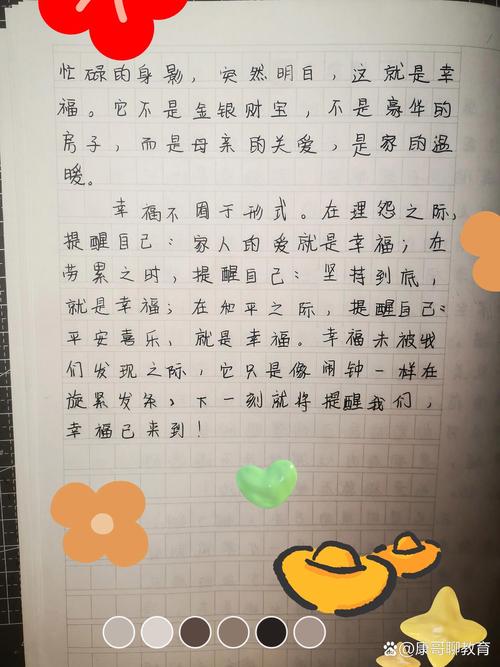 忙碌的身影，突然明白，这就是幸
福。它不是金银财宝，不是豪华的
房子，而是母亲的关爱，是家的温
暖。
幸福不囿于形式。在埋怨之际，
提醒自己：家人的爱就是幸福；在
劳累之时，提醒自己：坚持到底，
就是幸福；在和平之际，提醒自己：
平安喜乐，就是幸福。幸福未被我
们发现之际，它只是像闹钟一样在
旋紧发条，下一刻就将提醒我们，
幸福已来到！
@康哥聊教育